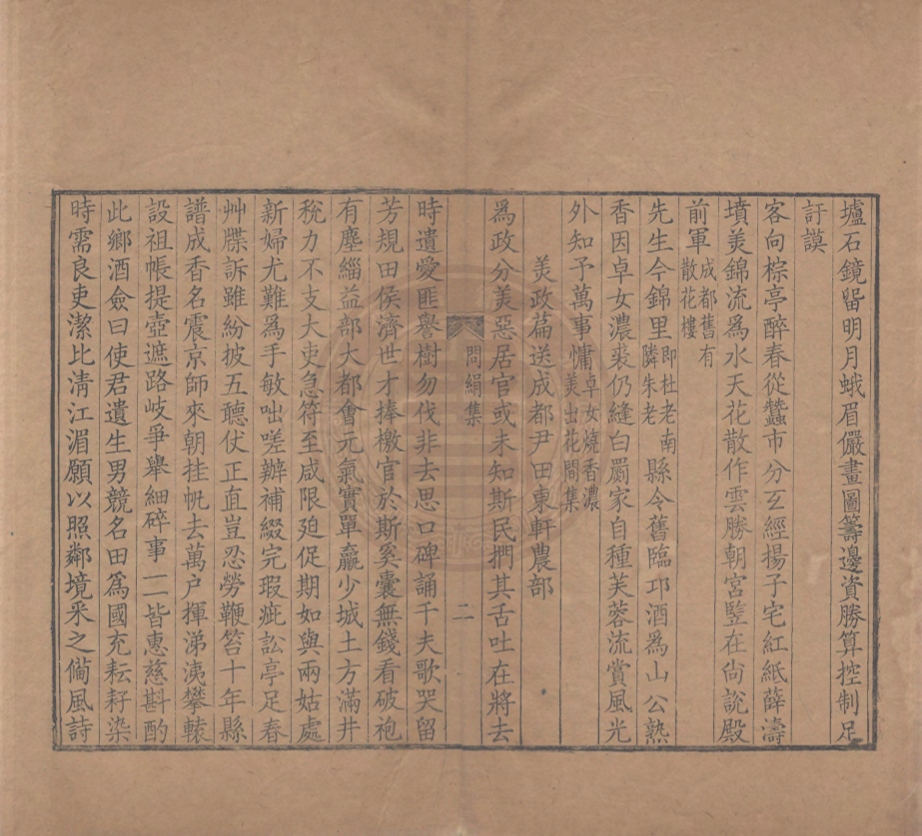 壚石鏡留明月蛾眉儼畫圖籌邊資勝算控制足
訏謨
客向棕亭醉春從蠶市分玄經揚子宅紅紙薛濤
墳美錦流爲水天花散作雲勝朝宮監在尙說殿
前軍成都舊有散花樓
先生今錦里即杜老南隣朱老縣令舊臨邛酒爲山公熟
香因卓女濃裘仍縫白罽家自種芙蓉流賞風光
外知予萬事慵卓女燒香濃美出花間集
美政篇送成都尹田東軒農部
爲政分美惡居官或未知斯民捫其舌吐在將去
問絹集
二
時遺愛匪舉樹勿伐非去思口碑誦千夫歌哭留
芳規田侯濟世才捧檄官於斯奚囊無錢看破袍
有塵緇益部大都會元氣實單羸少城土方滿井
稅力不支大吏急符至咸限廹促期如與兩姑處
新婦尤難爲手敏咄嗟辦補綴完瑕疵訟亭足春
艸牒訴雖紛披五聽伏正直豈忍勞鞭笞十年縣
譜成香名震京師來朝挂帆去萬户揮涕洟攀轅
設祖帳提壺遮路岐爭舉細碎事一二皆惠慈斟酌
此鄉酒僉曰使君遺生男競名田爲國充耘耔染
時需良吏潔比淸江湄願以照鄰境釆之備風詩